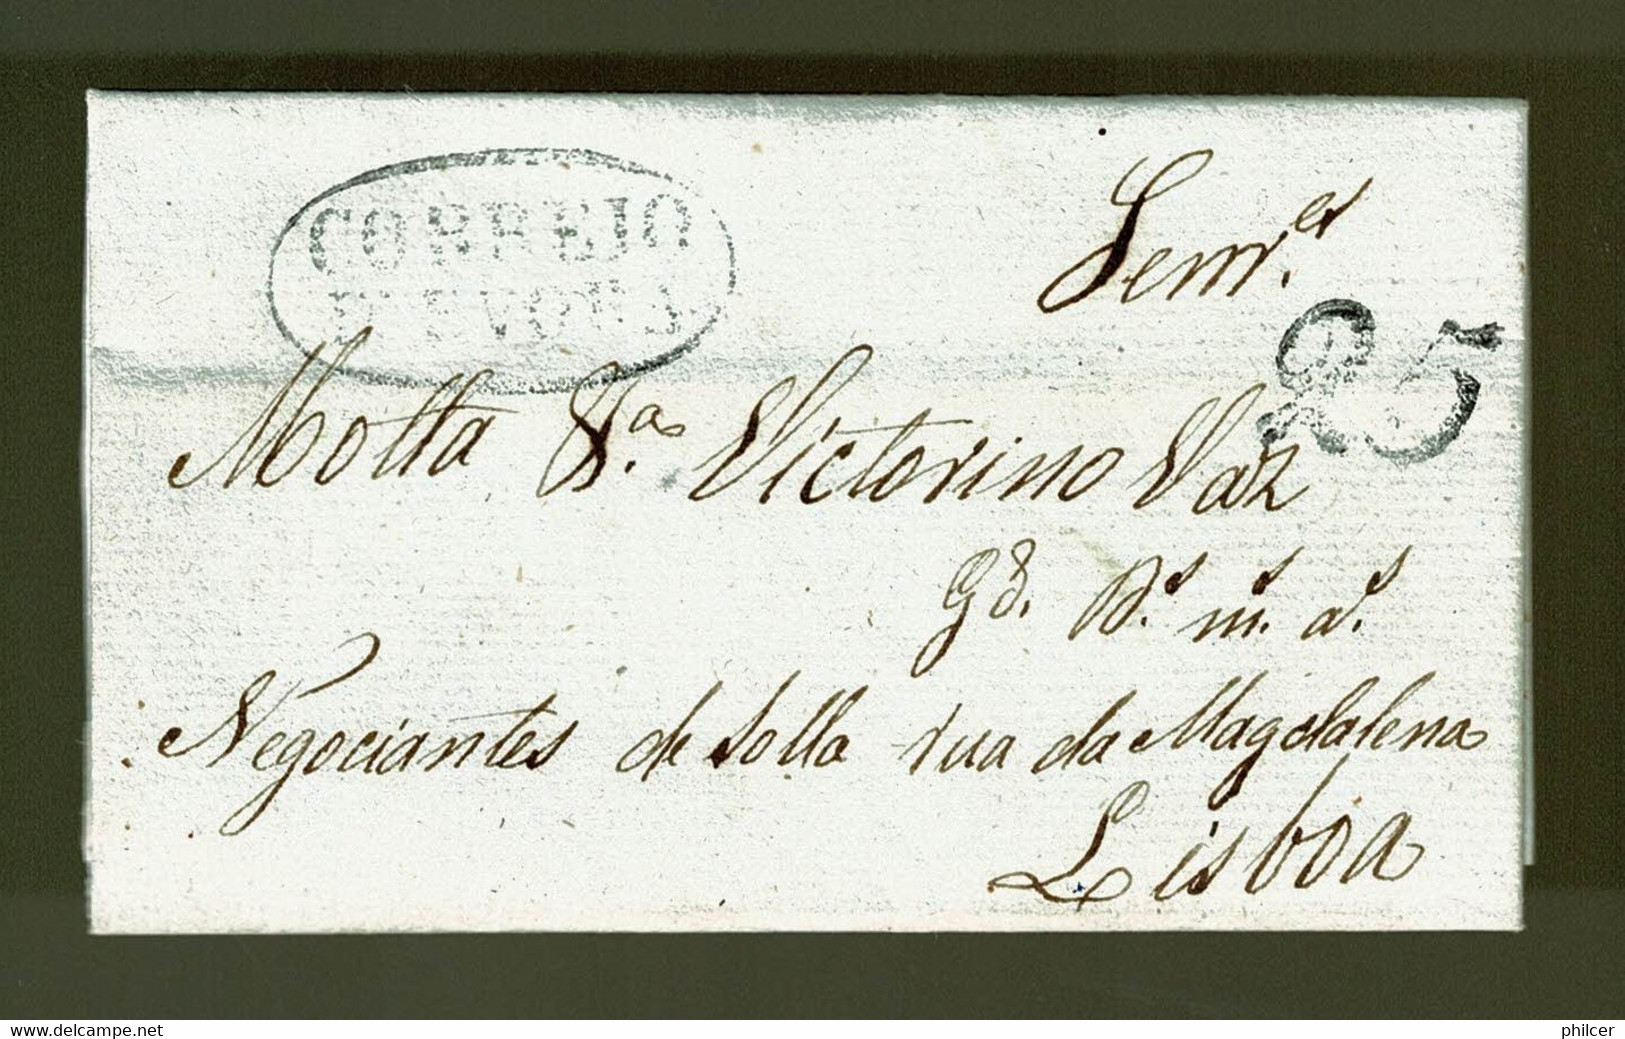 CORREIO
Senr.es
25
Motta Va. Victorino Vaz
Gd. Ds. m. as.
Negociantes de Solla rua da Magdalena
Lisboa
www.delcampe.net
philcer